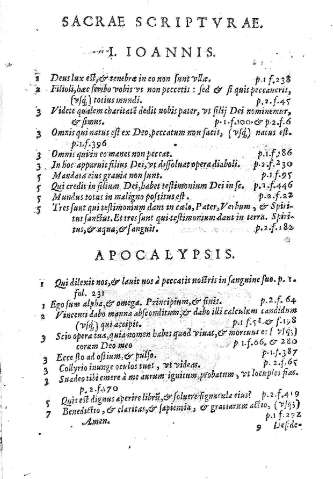 SACRAE SCRIPTVRAE.
I. IOANNIS.
1 Deus lux est, & tenebræ in eo non sunt vllæ. p.1.f.238
2 Filioli, hæc scribo vobis vt non peccetis: sed & si quis peccauerit,
(vsq;) totius mundi. p.2.f.45
3 Videte qualem charitatē dedit nobis pater, vt filij Dei nominemur,
& simus. p.1.f.100. & p.2.f.6
3 Omnis qui natus est ex Deo, peccatum non facit, (vsq;) natus est.
p.1.f.396
3 Omnis qui in eo manet non peccat. p.1.f.86
3 In hoc apparuit filius Dei, vt dissoluat opera diaboli. p.2.f.230
5 Mandata eius grauia non sunt. p.1.f.95
5 Qui credit in filium Dei, habet testimonium Dei in se. p.1.f.446
5 Mundus totus in maligno positus est. p.2.f.28
5 Tres sunt qui testimonium dant in cælo, Pater, Verbum, & Spiri-
tus sanctus. Et tres sunt qui testimonium dant in terra. Spiri-
tus, & aqua, & sanguis. p.2.f.182
APOCALYPSIS.
1 Qui dilexit nos, & lauit nos à peccatis nostris in sanguine suo. p.1.
fol. 231
1 Ego sum alpha, & omega. Principium, & finis. p.2.f.64
2 Vincenti dabo manna absconditum, & dabo illi calculum candidum
(vsq;) qui accipit. p.1.f.58. & f.198
3 Scio opera tua, quia nomen habes quod viuas, & mortuus es: (vsq;)
coram Deo meo p.1.f.66, & 280
3 Ecce sto ad ostium, & pulso. p.1.f.387
3 Collyrio inunge oculos tuos, vt videas. p.2.f.65
3 Suadeo tibi emere à me aurum ignitum, probatum, vt locuples fias.
p.2.f.170
5 Quis est dignus aperire librū, & soluere signacula eius? p.2.f.419
7 Benedictio, & claritas, & sapientia, & gratiarum actio, (vsq;)
Amen. p.1.f.272
9 Deside-